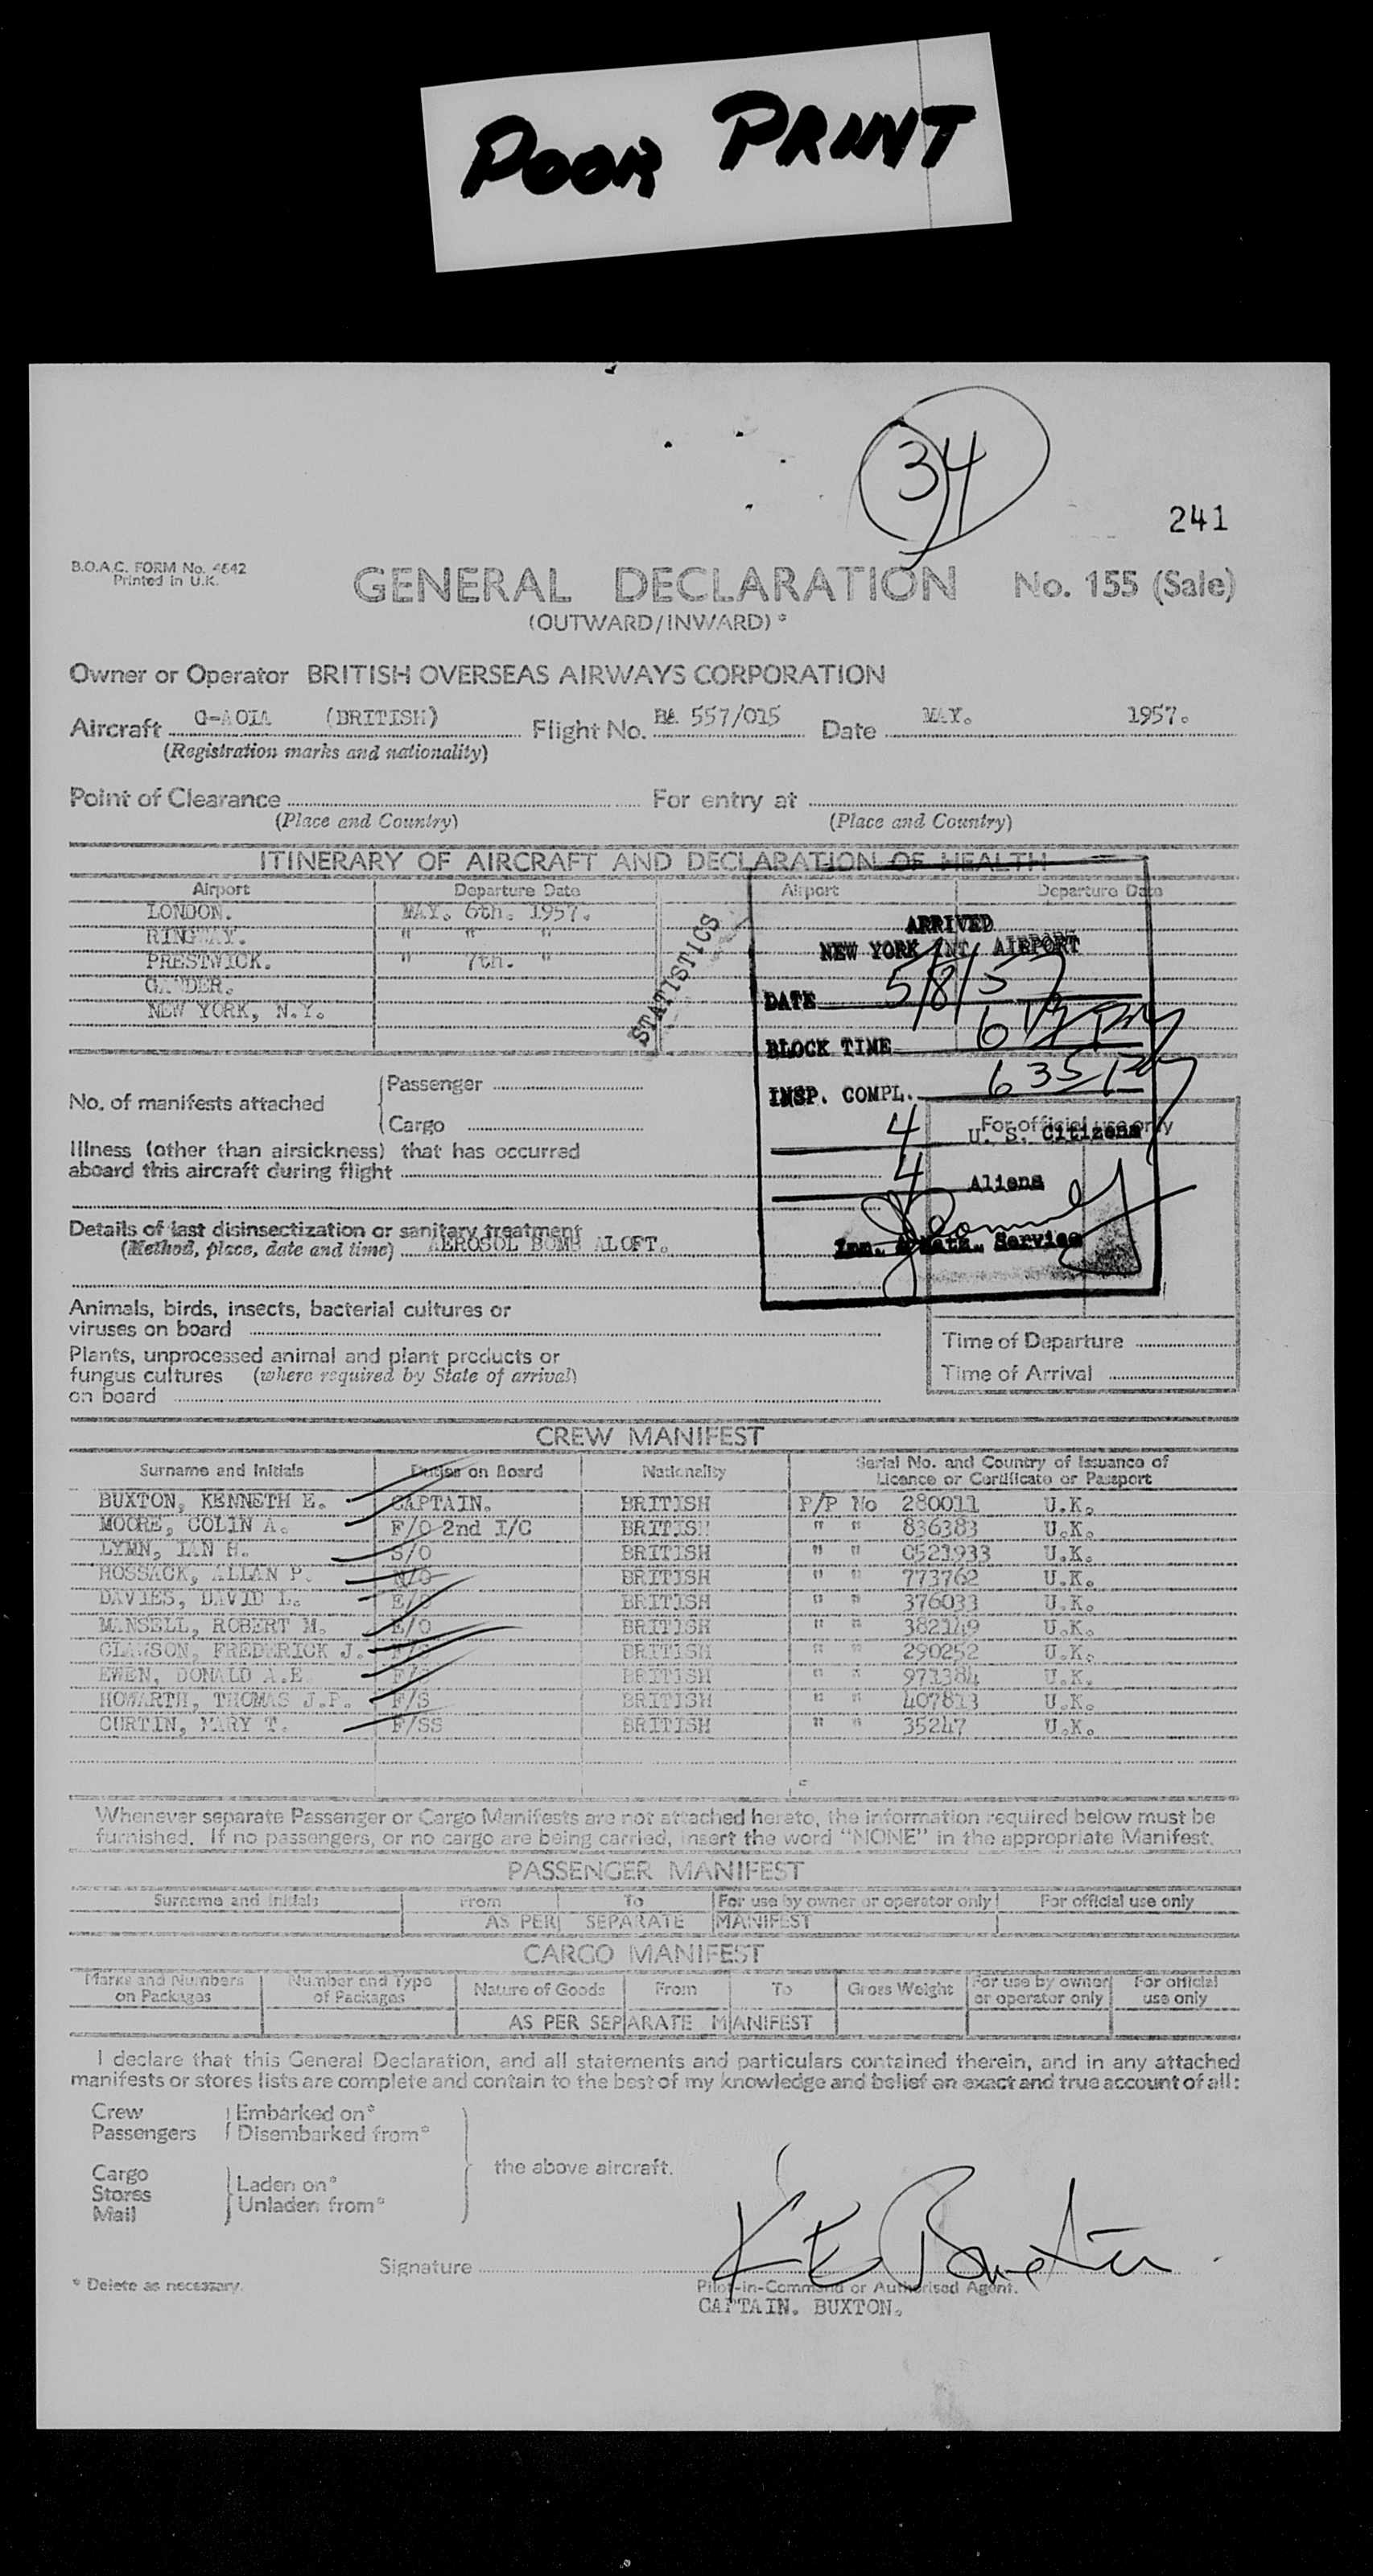 POOR PRINT
34
241
B.O.A.C. FORM No. 4642
Printed in U.K.
GENERAL DECLARATION No. 155 (Sale)
(OUTWARD/INWARD) *
Owner or Operator BRITISH OVERSEAS AIRWAYS CORPORATION
Aircraft G-AOIA (BRITISH) Flight No. BA 557/015 Date MAY. 1957.
(Registration marks and nationality)
Point of Clearance For entry at
(Place and Country) (Place and Country)
ITINERARY OF AIRCRAFT AND DECLARATION OF HEALTH
Airport Departure Date Airport Departure Date
LONDON. MAY. 6th. 1957.
RINGWAY. " " "
PRESTWICK. " 7th. "
GANDER.
NEW YORK, N.Y.
STATISTICS
ARRIVED
NEW YORK INT. AIRPORT
DATE 5/8/57
BLOCK TIME
INSP. COMPL. 635
4 U. S. Citizens
4 Aliens
Imm. & Natz. Service
No. of manifests attached
Passenger
Cargo
For official use only
Illness (other than airsickness) that has occurred
aboard this aircraft during flight
Details of last disinsectization or sanitary treatment
(Method, place, date and time) AEROSOL BOMB ALOFT.
Animals, birds, insects, bacterial cultures or
viruses on board
Plants, unprocessed animal and plant products or
fungus cultures (where required by State of arrival)
on board
Time of Departure
Time of Arrival
CREW MANIFEST
Surname and Initials Duties on Board Nationality Serial No. and Country of Issuance of
Licence or Certificate or Passport
BUXTON, KENNETH E. CAPTAIN. BRITISH P/P No 280011 U.K.
MOORE, COLIN A. F/O 2nd I/C BRITISH " " 836383 U.K.
LYMN, IAN H. S/O BRITISH " " 0521933 U.K.
HOSSACK, ALLAN P. N/O BRITISH " " 773762 U.K.
DAVIES, DAVID L. E/O BRITISH " " 376033 U.K.
MANSELL, ROBERT M. E/O BRITISH " " 382149 U.K.
CLAWSON, FREDERICK J. BRITISH " " 290252 U.K.
EWEN, DONALD A.E. BRITISH " " 971384 U.K.
HOWARTH, THOMAS J.P. F/S BRITISH " " 407813 U.K.
CURTIN, MARY T. F/SS BRITISH " " 35247 U.K.
Whenever separate Passenger or Cargo Manifests are not attached hereto, the information required below must be
furnished. If no passengers, or no cargo are being carried, insert the word "NONE" in the appropriate Manifest.
PASSENGER MANIFEST
Surname and Initials From To For use by owner or operator only For official use only
AS PER SEPARATE MANIFEST
CARGO MANIFEST
Marks and Numbers on Packages Number and Type of Packages Nature of Goods From To Gross Weight For use by owner or operator only For official use only
AS PER SEPARATE MANIFEST
I declare that this General Declaration, and all statements and particulars contained therein, and in any attached
manifests or stores lists are complete and contain to the best of my knowledge and belief an exact and true account of all:
Crew Embarked on*
Passengers Disembarked from*
the above aircraft.
Cargo
Stores Laden on*
Mail Unladen from*
Signature K E Buxton
* Delete as necessary.
Pilot-in-Command or Authorised Agent.
CAPTAIN. BUXTON.